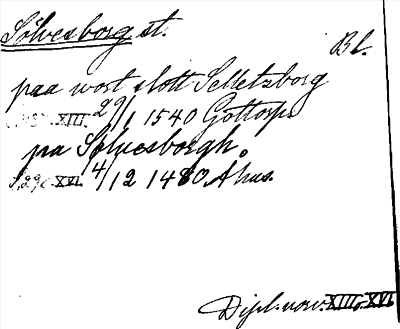 Sölvesborg st.
Bl.
paa wort slott Selletzborg
XIII. 29/1 1540 Gottorps
pa Sølvesborgh.
S. 290 XVI 4/12 1480 Ahus.
Dipl. norv. XIII, XVI